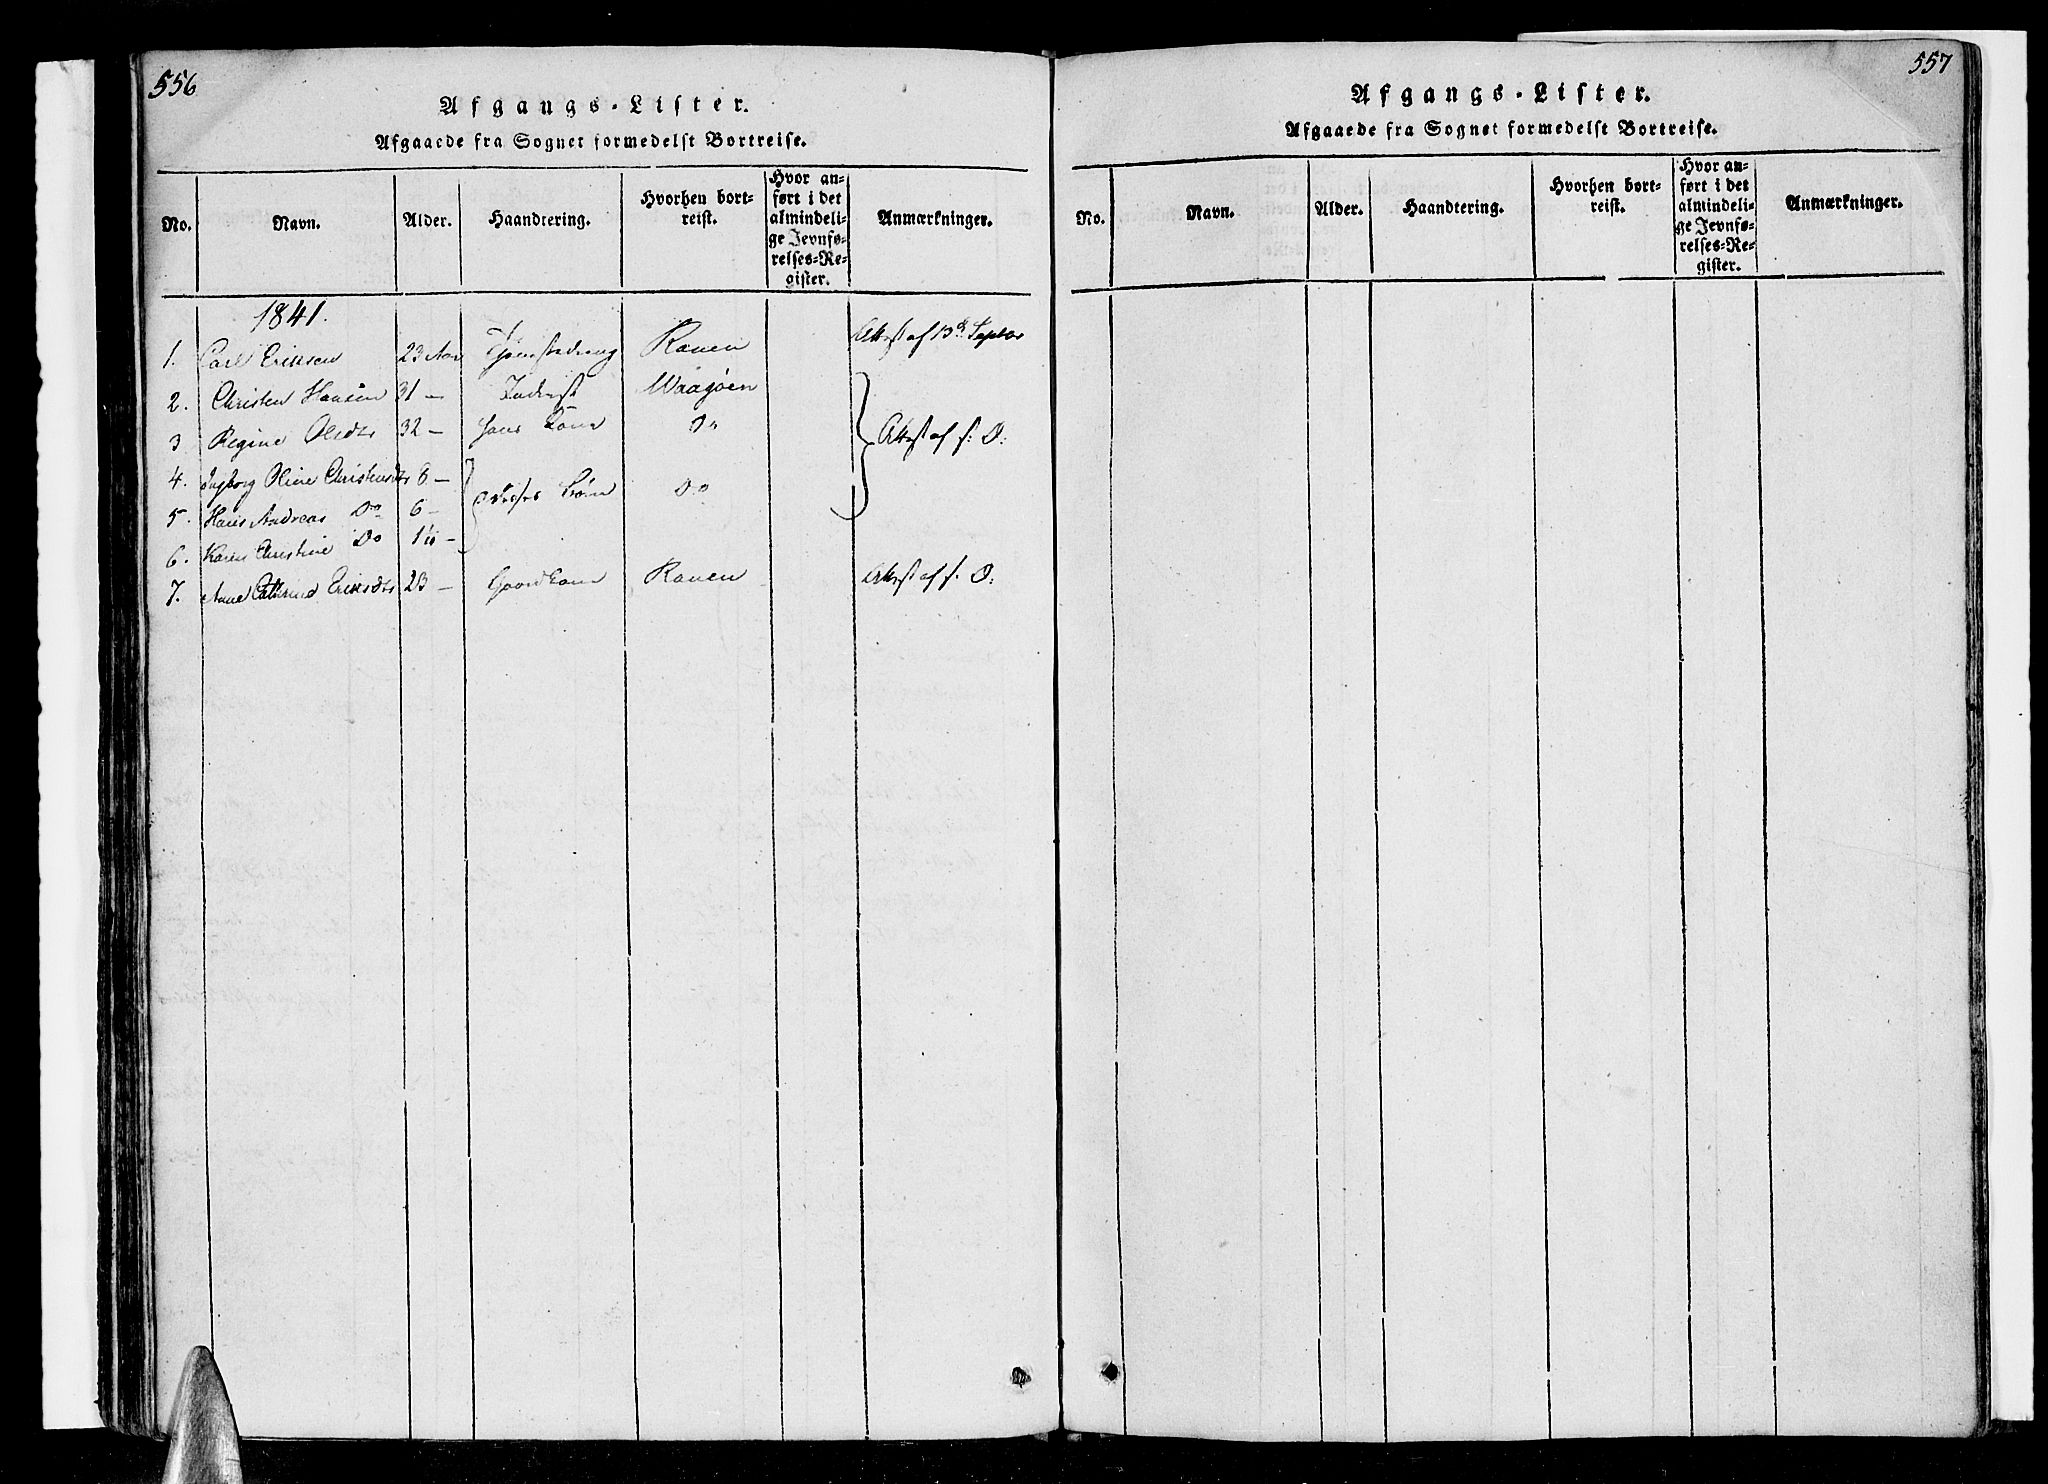 556
Afgangs-Lister.
Afgaaede fra Sognet formedelst Bortreise.
No. Navn. Alder. Haandtering. Hvorhen bort-
reist. Hvor an-
ført i det
almindeli-
ge Jevnfø-
relses-Re-
gister. Anmærkninger.
1841.
1. Carl Eriksen 23 Aar Tjenestedreng Ranen Attest af 13d Septbr
2. Christen Hansen 31 — Inderst Waagøen
3 Regine Olsdtr 32 — hans Kone Do Attest af s: D:
4. Ingborg Oline Christensdtr 8 — Børn Do
5. Hans Andreas Do 6 —
6. Karen Christine Do
7. Anne Cathrine Eriksdtr 23 — Ranen Attest af s. D:
557
Afgangs-Lister.
Afgaaede fra Sognet formedelst Bortreise.
No. Navn. Alder. Haandtering. Hvorhen bort-
reist. Hvor an-
ført i det
almindeli-
ge Jevnfø-
relses-Re-
gister. Anmærkninger.